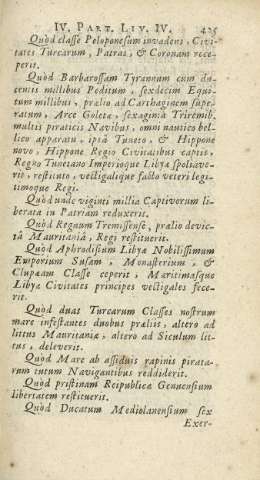 IV. PART. LIV. IV. 425
Quòd classe Peloponesum invadens, Civi-
tates Turcarum, Patras, & Coronam rece-
perit.
Quòd Barbarossam Tyrannum cum du-
centis millibus Peditum, sexdecim Equi-
tum millibus, prælio ad Carthaginem supe-
ratum, Arce Goleta, sexaginta Triremib.
multis piraticis Navibus, omni nautico bel-
lico apparatu, ipsâ Tuneto, & Hippone
novo, Hippone Regio Civitatibus captis,
Regno Tunetano Imperioque Libyæ spoliave-
rit, restituto, vectigalique facto veteri legi-
timoque Regi.
Quòd unde viginti millia Captivorum li-
berata in Patriam reduxerit.
Quòd Regnum Tremissense, prælio devic-
tâ Mauritaniâ, Regi restituerit.
Quòd Aphrodisium Libyæ Nobilissimum
Emporium Susam, Monasterium, &
Clupæam Classe ceperit, Maritimasque
Libyæ Civitates principes vectigales fece-
rit.
Quòd duas Turcarum Classes nostrum
mare infestantes duobus præliis, altero ad
litus Mauritaniæ, altero ad Siculum lit-
tus, deleverit.
Quòd Mare ab assiduis rapinis pirata-
rum tutum Navigantibus reddiderit.
Quòd pristinam Reipublicæ Genuensium
libertatem restituerit.
Quòd Ducatum Mediolanensium sex
Exer-